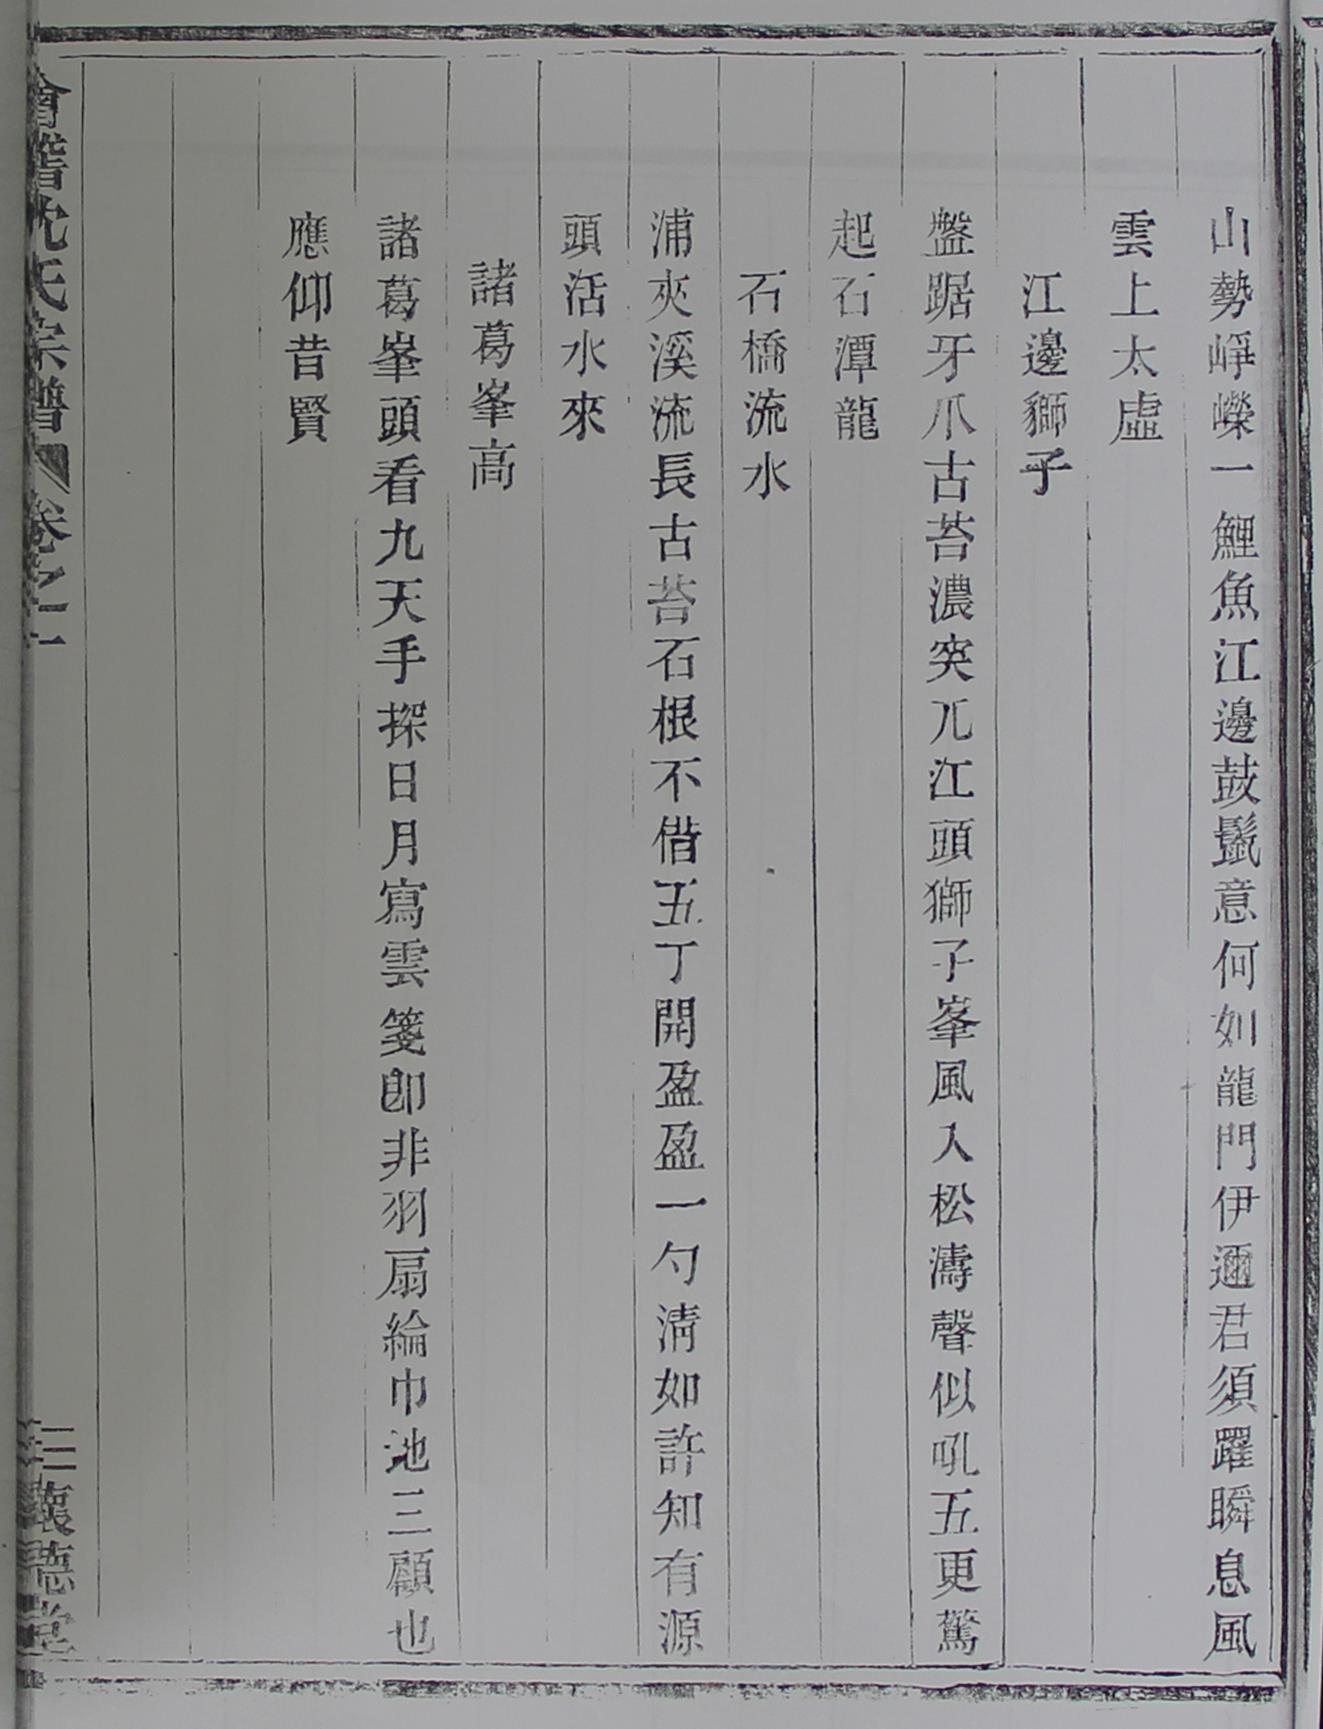 山勢崢嶸一鯉魚江邊鼓鬣意何如龍門伊邇君須躍瞬息風
雲上太虛
江邊獅子
盤踞牙爪古苔濃突兀江頭獅子峯風入松濤聲似吼五更驚
起石潭龍
石橋流水
浦夾溪流長古苔石根不偕五丁開盈盈一勺清如許知有源
頭活水來
諸葛峯高
諸葛峯頭看九天手探日月寫雲箋即非羽扇綸巾池三顧也
應仰昔賢
會稽沈氏宗譜 卷之一
三 懷德堂